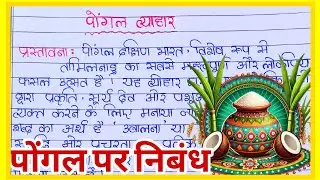 पोंगल त्योहार
प्रस्तावना: पोंगल दक्षिण भारत, विशेष रूप से
तमिलनाडु का सबसे महत्वपूर्ण और लोकप्रिय
फसल उत्सव है। यह त्योहार
द्वारा प्रकृति, सूर्य देव और पशुओं
व्यक्त करने के लिए मनाया
शब्द का अर्थ है 'उबालना' या
और प्रचुरता
पोंगल पर निबंध